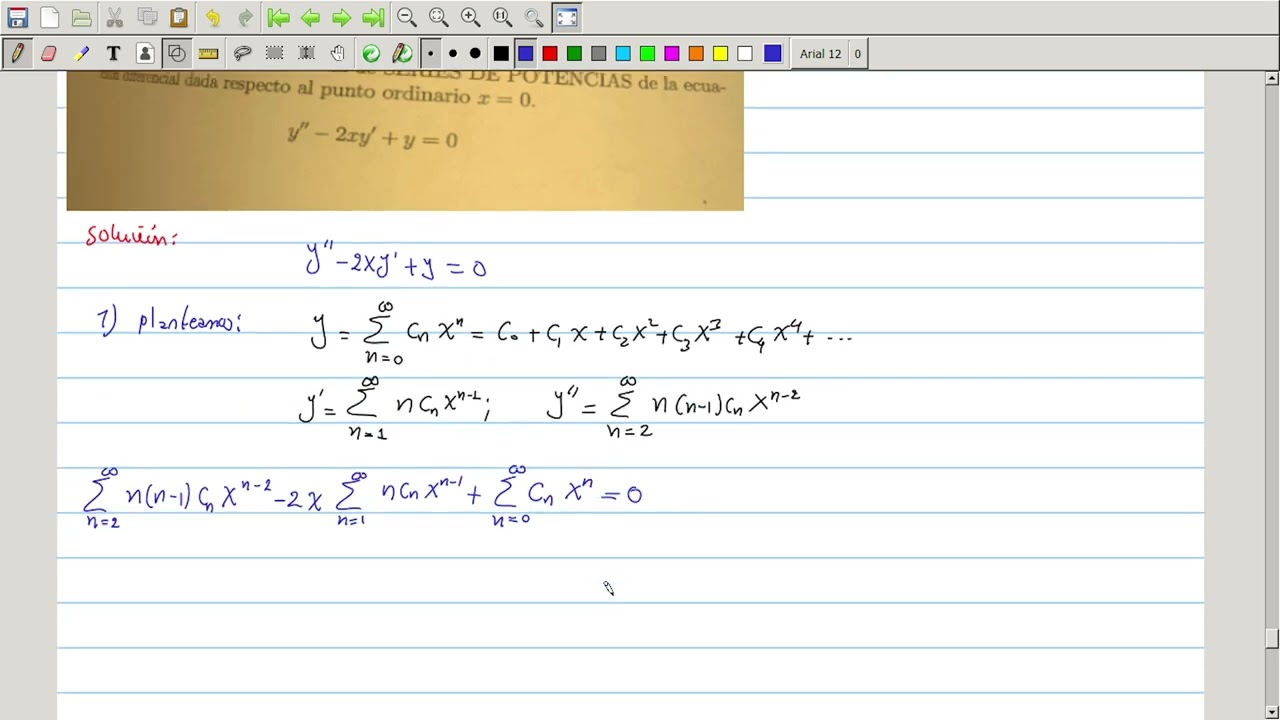 Arial 12 0
SERIES DE POTENCIAS de la ecua-
diferencial dada respecto al punto ordinario x = 0.
y'' − 2xy' + y = 0
Solución:
y'' − 2xy' + y = 0
1) planteamos: y = ∑_{n=0}^{∞} Cₙ xⁿ = C₀ + C₁ x + C₂ x² + C₃ x³ + C₄ x⁴ + ...
y' = ∑_{n=1}^{∞} n Cₙ x^{n-1} ; y'' = ∑_{n=2}^{∞} n(n-1) Cₙ x^{n-2}
∑_{n=2}^{∞} n(n-1) Cₙ x^{n-2} − 2x ∑_{n=1}^{∞} n Cₙ x^{n-1} + ∑_{n=0}^{∞} Cₙ xⁿ = 0